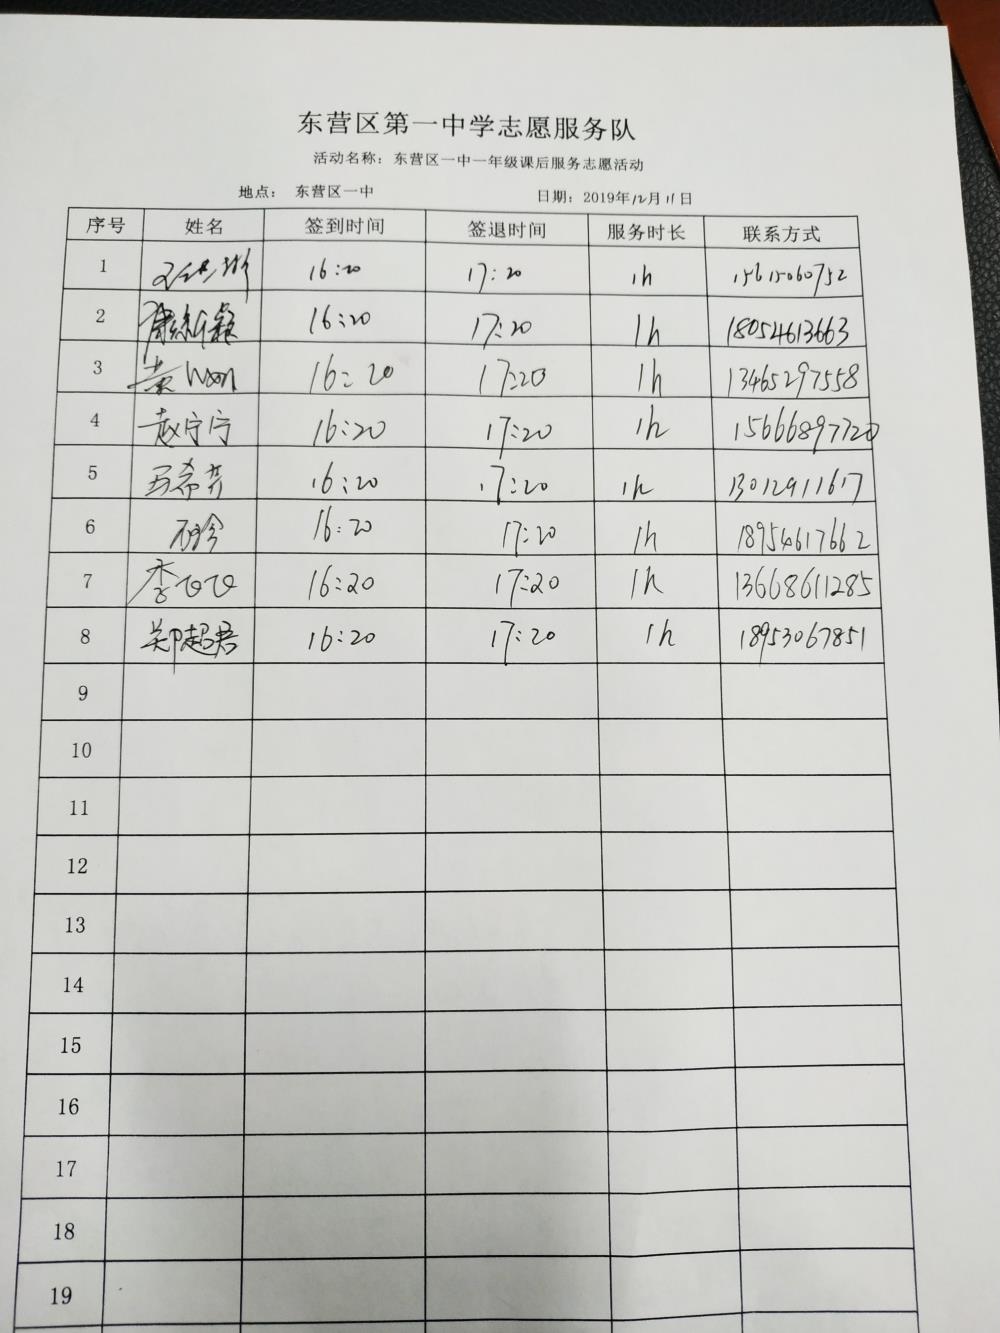 东营区第一中学志愿服务队
活动名称：东营区一中一年级课后服务志愿活动
地点： 东营区一中 日期：2019年12月11日
序号 姓名 签到时间 签退时间 服务时长 联系方式
1 16:20 17:20 1h 15615060752
2 16:20 17:20 1h 18054613663
3 黄 16:20 17:20 1h 13465297558
4 赵宁宁 16:20 17:20 1h 15666897720
5 16:20 17:20 1h 13012911617
6 16:20 17:20 1h 18954617662
7 李飞飞 16:20 17:20 1h 13668611285
8 郑超君 16:20 17:20 1h 18953067851
9
10
11
12
13
14
15
16
17
18
19